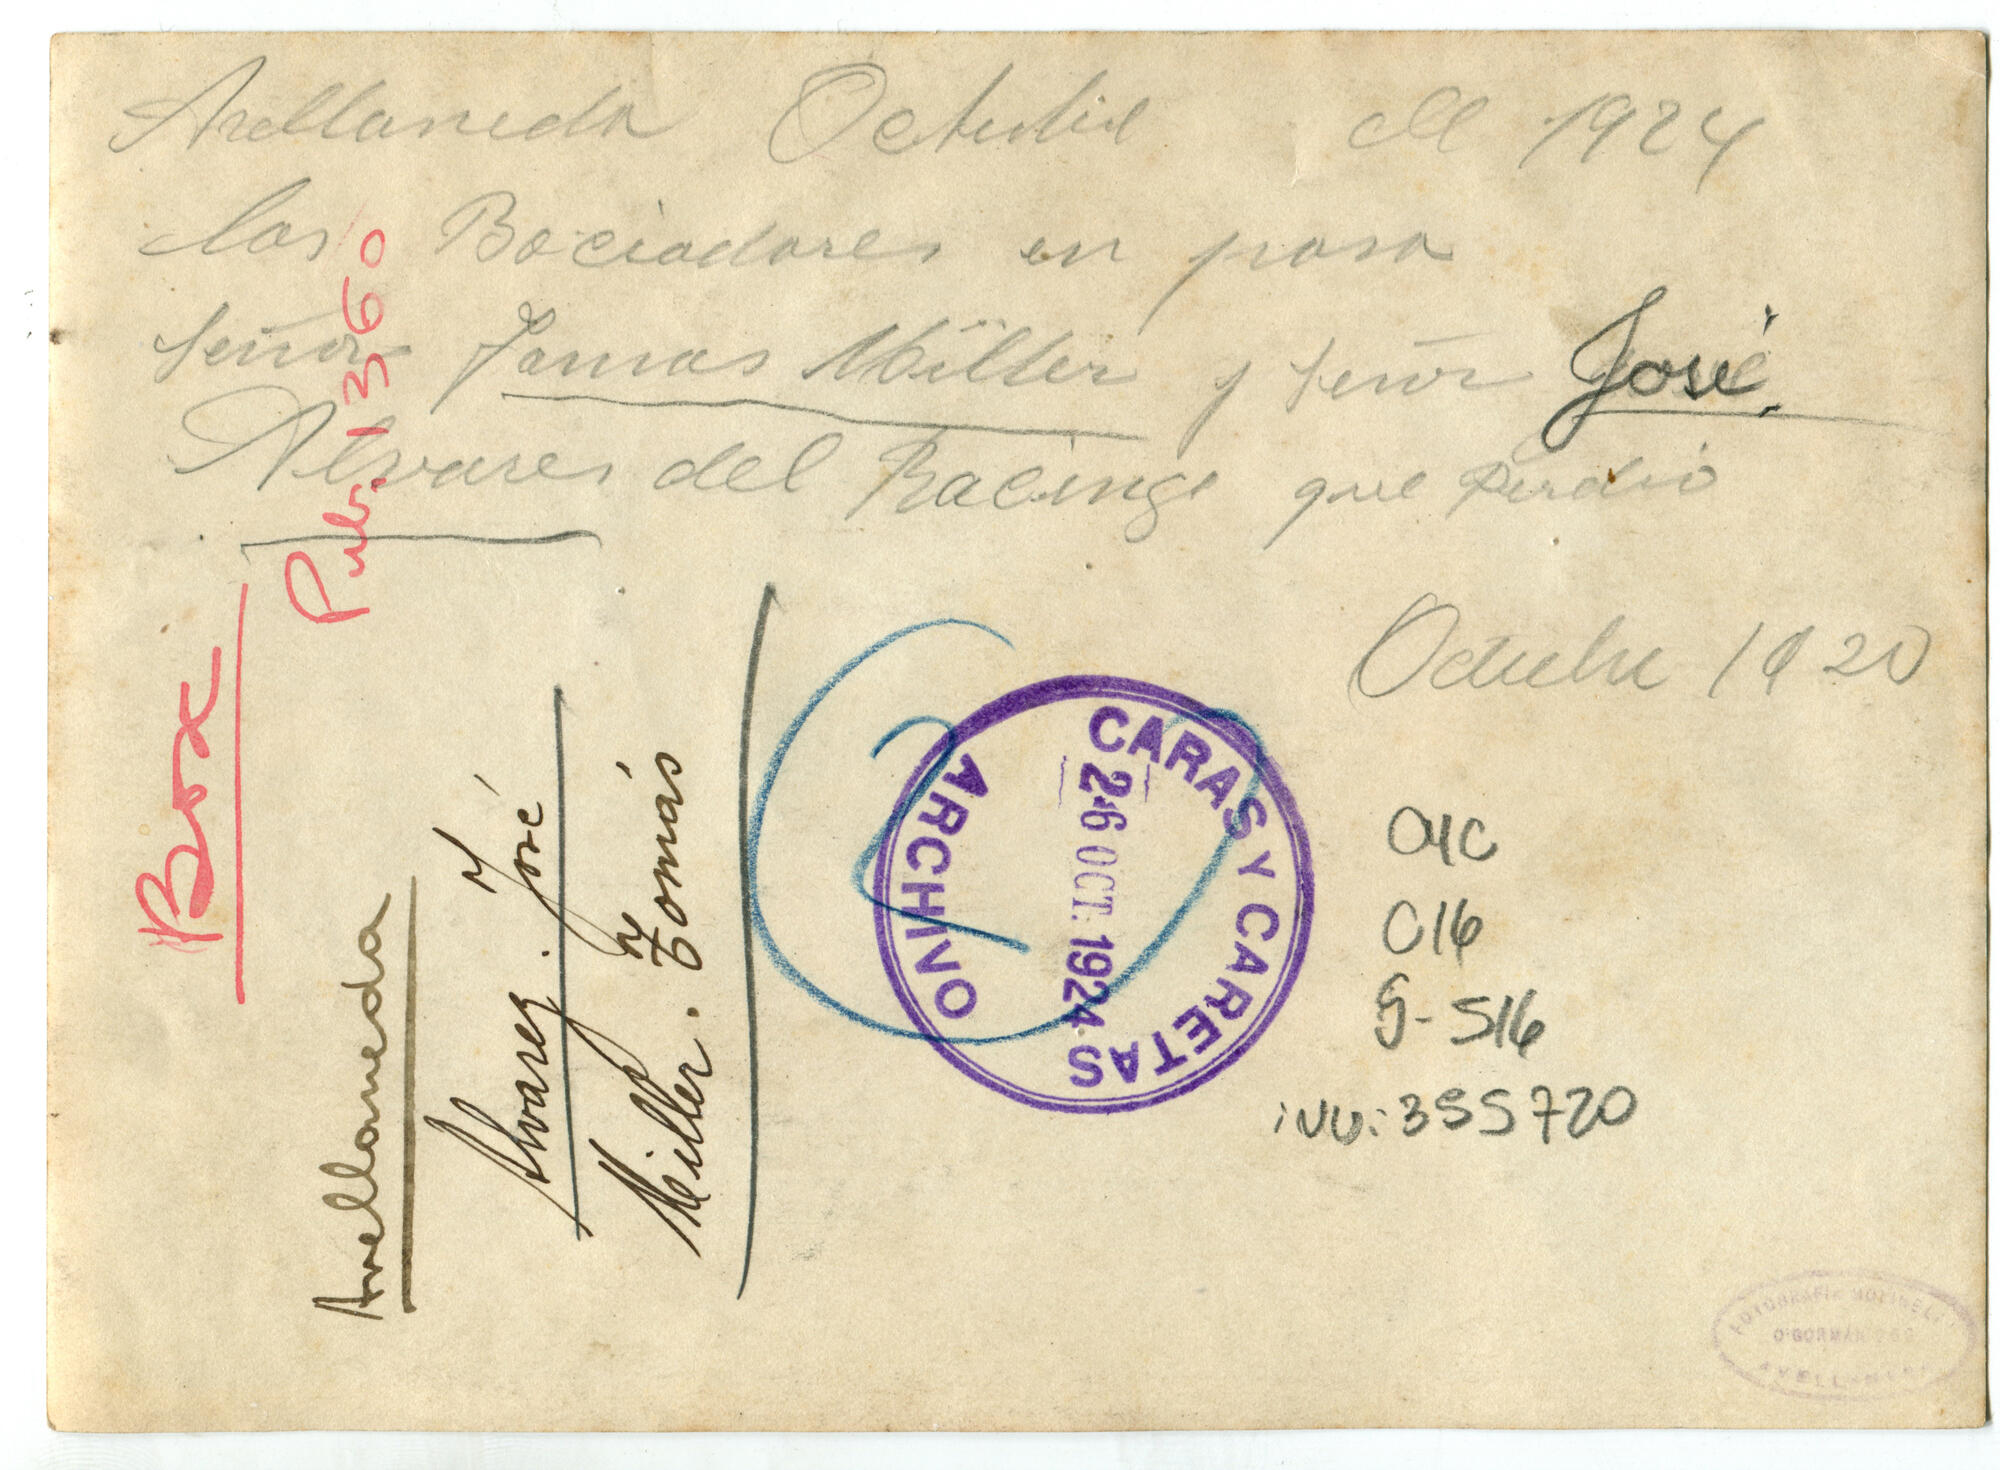 Avellaneda Octubre del 1924
los Bociadores en posa
señor Tomas Miller y señor José
Alvares del Racinge que perdio
Octubre 1920
Box
Pub. 1360
Avellaneda
Alvarez. José
Miller. Tomás
CARAS Y CARETAS
26 OCT. 1924
ARCHIVO
C16
S-516
inv: 355720
FOTOGRAFIA MOLINELLI
O'GORMAN
AVELLANEDA